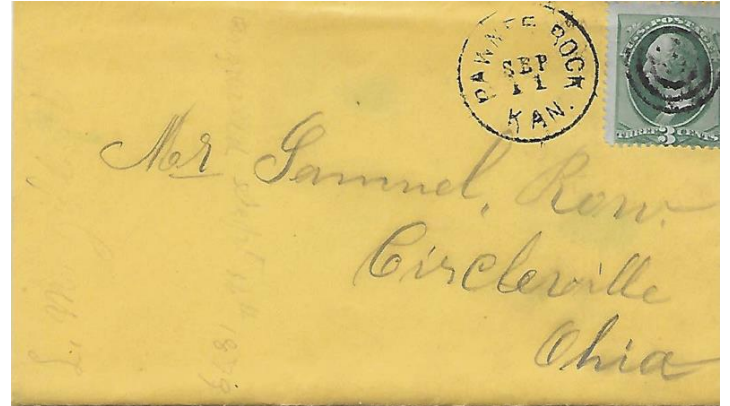 PAWNEE ROCK
SEP
11
KAN.
U.S. POSTAGE
THREE 3 CENTS
Mr Samuel, Row.
Circleville
Ohio
Sept 1879